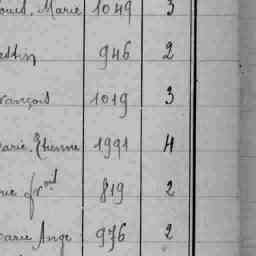 Marie 1049 3
946 2
rançois 1019 3
arie Etienne 1991 4
819 2
arie Ange 976 2